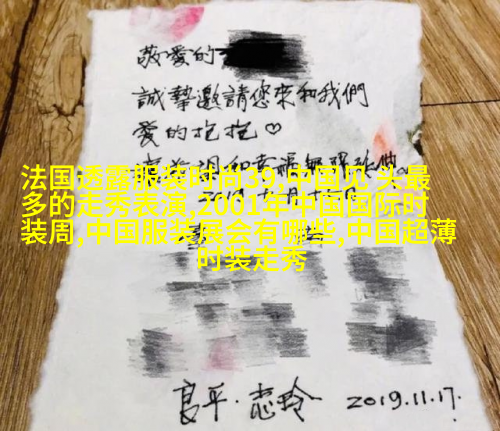 敬愛的
誠摯邀請您來和我們
愛的抱抱♡
法国透露服装时尚39,中国见 头最
多的走秀表演,2001年中国国际时
装周,中国服装展会有哪些,中国超薄
时装走秀
良平·志玲 2019.11.17.